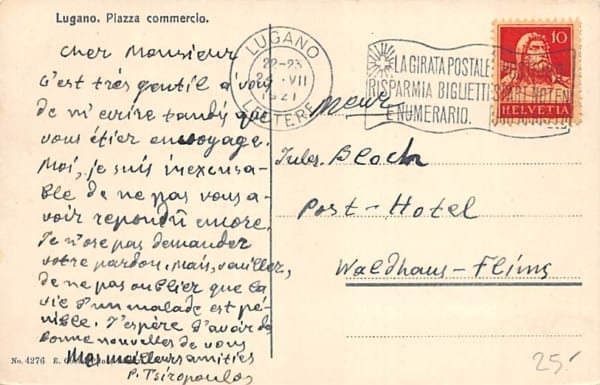 Lugano. Piazza commercio.
Cher Monsieur
C'est très gentil à vous
de m'ecrire tandis que
vous étier en voyage.
Moi, je suis inexcusa-
ble de ne pas vous a-
voir repondu encore.
Je n'ose pas demander
votre pardon. Mais, veuiller,
de ne pas oublier que la
vie d'un malade est pé-
nible. J'espère d'avoir de
bonne nouvelles de vous
Mes meilleurs amities
P. Tsiropoulos
No. 4276 E.
LUGANO
22-23
VII
1921
LETTERE
LA GIRATA POSTALE
RISPARMIA BIGLIETTI
E NUMERARIO.
10
HELVETIA
Bloch
Post-Hotel
Waldhaus-Flims
25.-